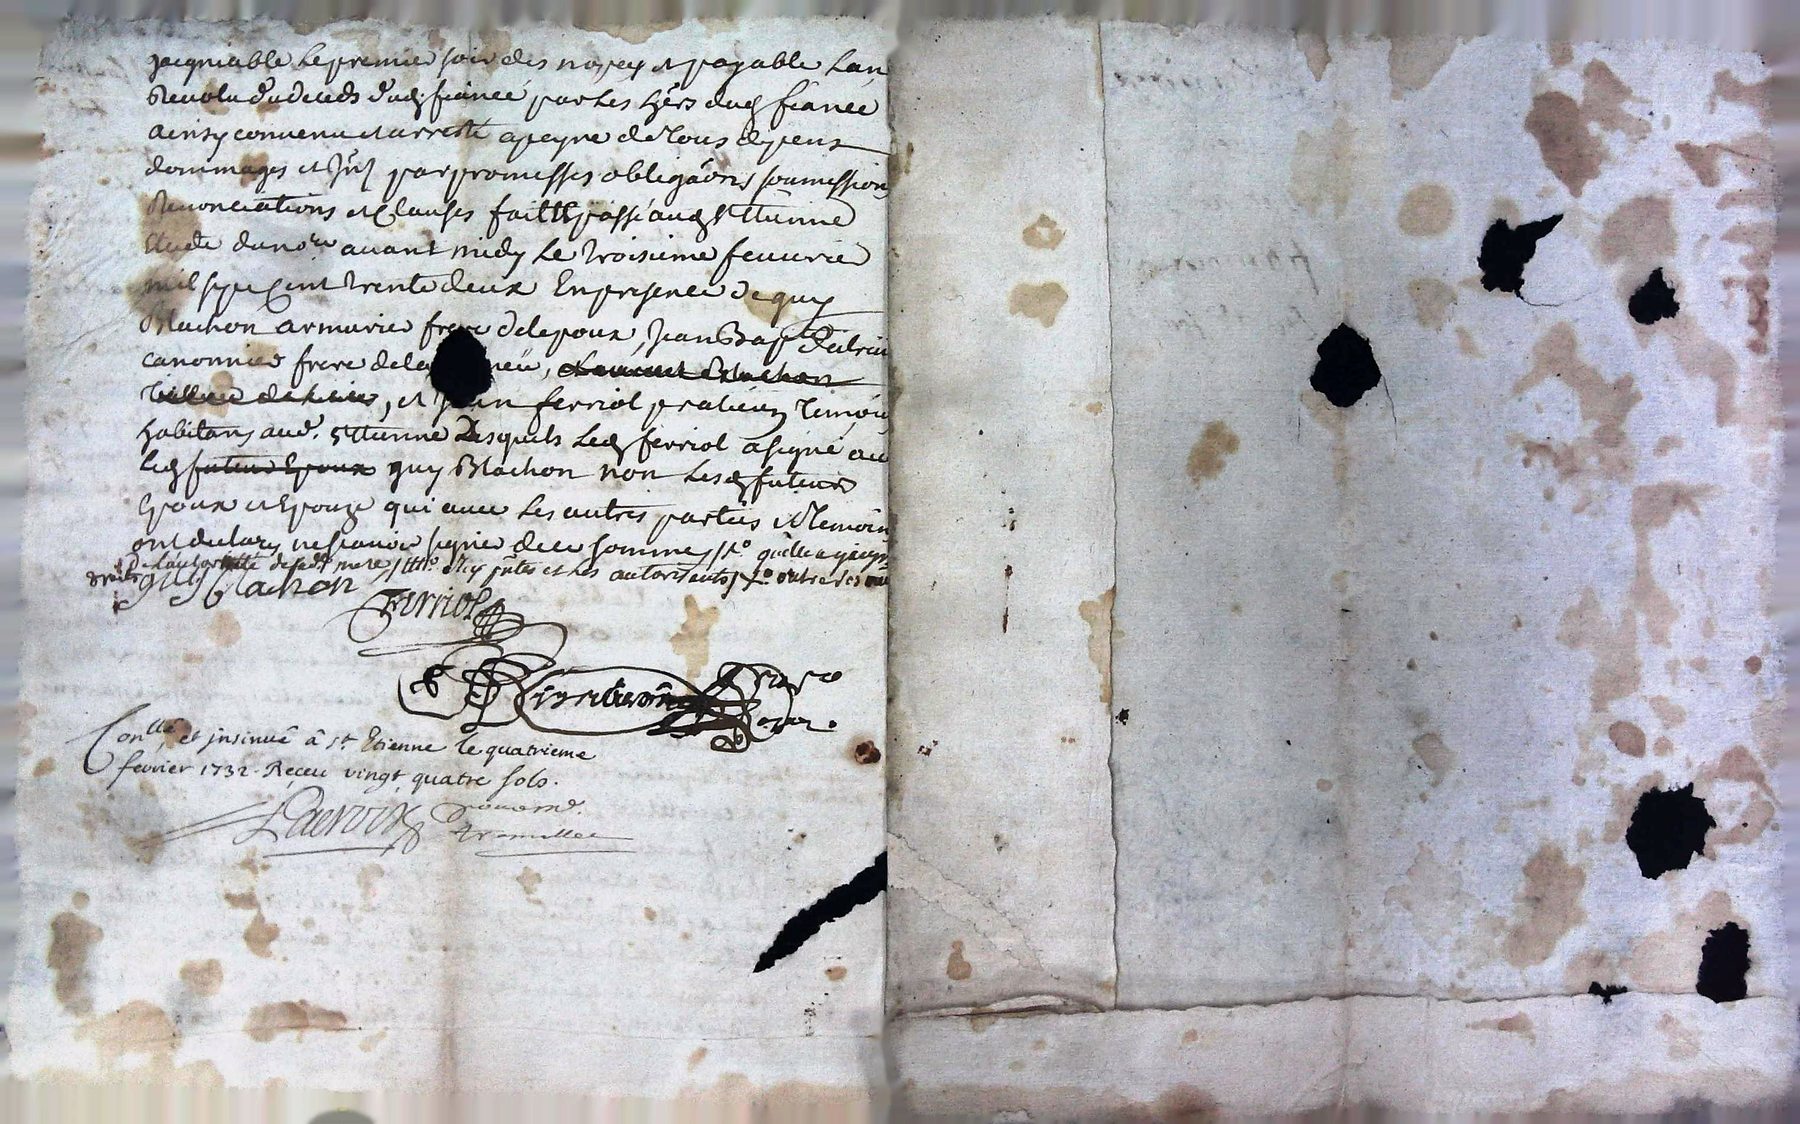 gaigniable le premier soir des nopces et payable lan
Revolu du deceds dud fiancé par les hers dud fiancé
ainsy convenu et arresté a peyne de tous depens
dommages et par promesses obligãons soumissions
Renonciations et Clauses fait et passé aud St Etienne
Etude du nore avant midy le troisieme fevvrier
mil sept Cent trente deux En presence de guy
Blachon armurier frere de lepoux, Jean Bapt
canonnier frere de la
et Jean ferriol praticien temoins
habitans aud. St Etienne Lesquels led ferriol a signé avec
led futeur Epoux guy Blachon non les d futeurs
Epoux et Epouze qui avec les autres parties et temoins
ont declaré ne scavoir signer de ce sommes
l'authorité de sad. mere et les autorisants outre ses
droits
guy Blachon
Ferriol
Conllé et insinué â St Etienne le quatrieme
fevrier 1732. Receu vingt quatre sols.
Lacroix